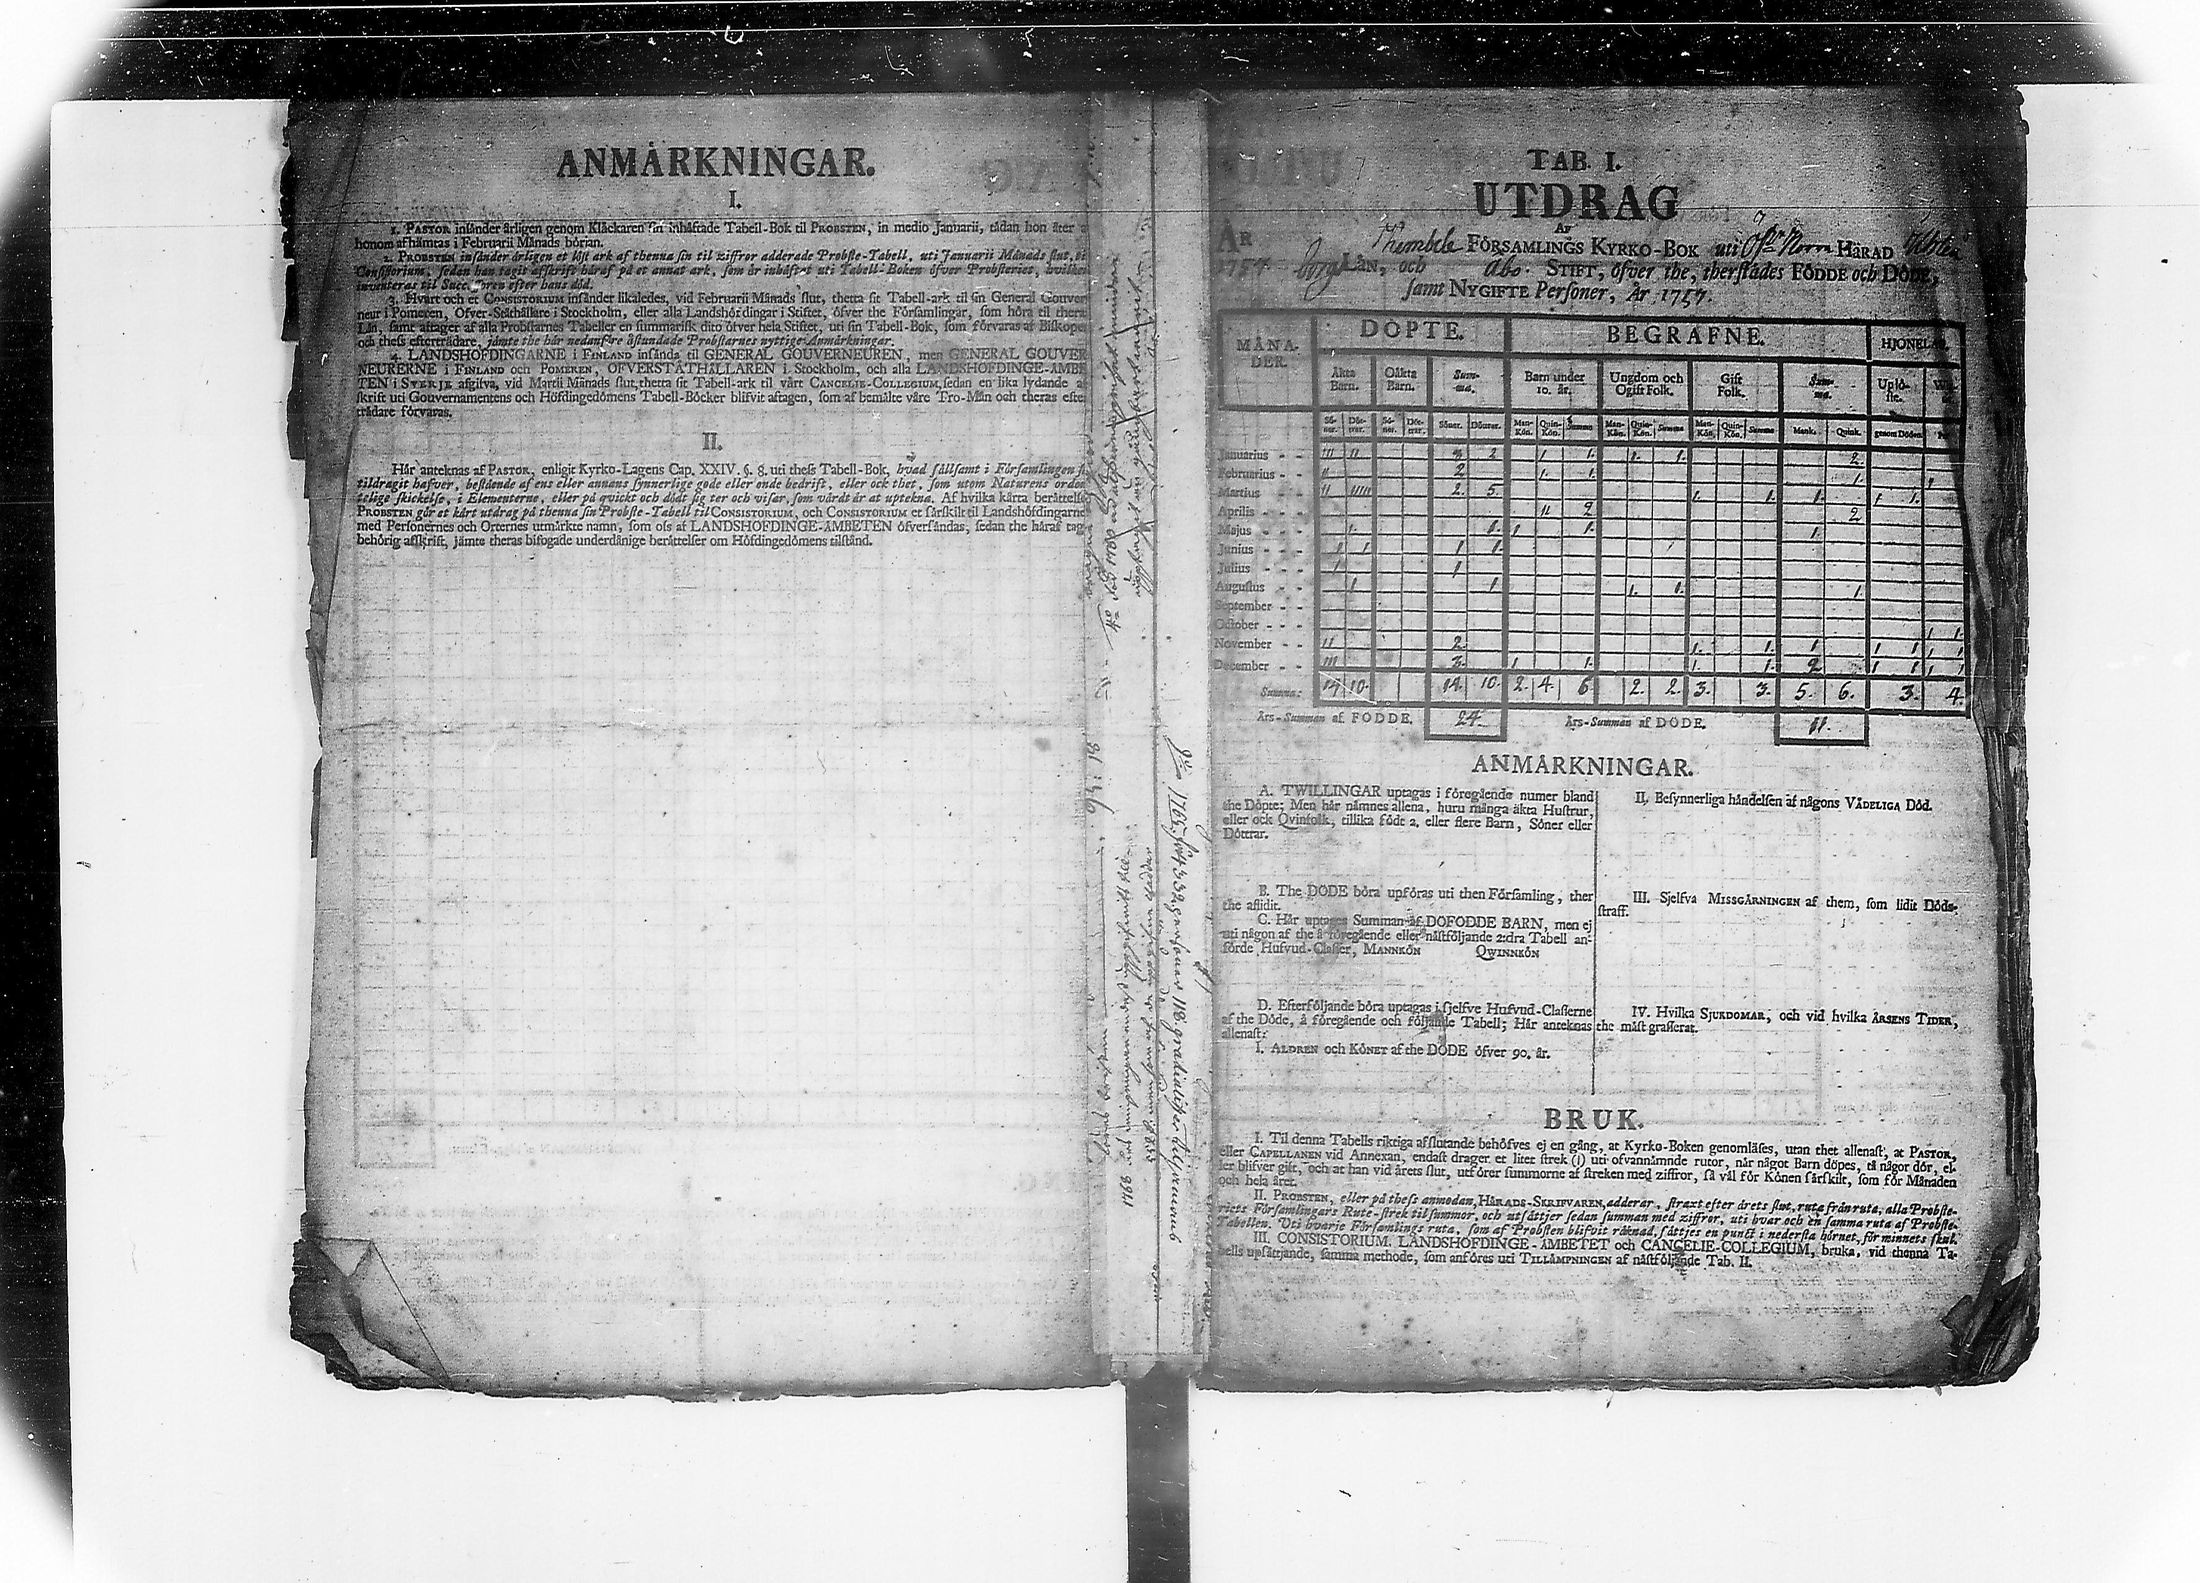 ANMÄRKNINGAR.
I.
1. PASTOR insänder årligen genom Klåckaren sin inhäftade Tabell-Bok til PROBSTEN, in medio Januarii, sådan hon åter a
honom afhämtas i Februarii Månads början.
2. PROBSTEN insänder årligen et löst ark af thenna sin til ziffror adderade Probste-Tabell, uti Januarii Månads slut, til
Consistorium, sedan han tagit afskrift häraf på et annat ark, som är inhäftat uti Tabell-Boken öfver Probsteriet, hvilken
inventeras til Successoren efter hans död.
3. Hvart och et CONSISTORIUM insänder likaledes, vid Februarii Månads slut, thetta sit Tabell-ark til sin General Gouver
neur i Pomeren, Öfver-Ståthållare i Stockholm, eller alla Landshöfdingar i Stiftet, öfver the Församlingar, som höra til thera
Län, samt aftager af alla Probstarnes Tabeller en summarisk dito öfver hela Stiftet, uti sin Tabell-Bok, som förvaras af Biskopen
och thess efterträdare, jämte the här nedanföre åstundade Probstarnes nyttige Anmärkningar.
4. LANDSHÖFDINGARNE i FINLAND insända til GENERAL GOUVERNEUREN, men GENERAL GOUVER
NEURERNE i FINLAND och POMEREN, ÖFVERSTÅTHÅLLAREN i Stockholm, och alla LANDSHÖFDINGE-ÄMBE
TEN i SVERJE afgifva, vid Martii Månads slut, thetta sit Tabell-ark til vårt CANCELIE-COLLEGIUM, sedan en lika lydande af
skrift uti Gouvernamentens och Höfdingedömens Tabell-Böcker blifvit aftagen, som af bemälte våre Tro-Män och theras efte
trädare förvaras.
II.
Här anteknas af PASTOR, enligit Kyrko-Lagens Cap. XXIV. §. 8. uti thess Tabell-Bok, hvad sällsamt i Församlingen si
tildragit hafver, bestående af ens eller annans synnerlige gode eller onde bedrift, eller ock thet, som utom Naturens orden
telige skickelse, i Elementerne, eller på qvickt och dödt sig ter och visar, som värdt är at uptekna. Af hvilka kårta berättelse
PROBSTEN gör et kårt utdrag på thenna sin Probste-Tabell til CONSISTORIUM, och CONSISTORIUM et särskilt til Landshöfdingarne
med Personernes och Orternes utmärkte namn, som oss af LANDSHÖFDINGE-ÄMBETEN öfversändas, sedan the häraf tag
behörig afskrift, jämte theras bifogade underdånige berättelser om Höfdingedömens tilstånd.
TAB I.
UTDRAG
AF
ÅR
1757
FÖRSAMLINGS KYRKO-BOK uti Norra HÄRAD
borgs LÄN, och Åbo STIFT, öfver the, therstädes FÖDDE och DÖDE,
samt NYGIFTE Personer, År 1757.
MÅNA-
DER.
DÖPTE. BEGRAFNE. HJONELAG.
Äkta Barn. Oäkta Barn. Sum-ma. Barn under 10. år. Ungdom och Ogift Folk. Gift Folk. Sum-ma. Uplö-ste.
Sö-ner. Döt-trar. Sö-ner. Döt-trar. Söner. Döttrar. Man-Kön. Quin-Kön. Summa Man-Kön. Quin-Kön. Summa Man-Kön. Quin-Kön. Summa Mank. Quink. genom Döden.
Januarius - - III II 3 2 1 1. 1. 1. 2.
Februarius - - II 2 1. 1. 1.
Martius - - II IIIII 2. 5. 1. 1. 1. 1 1.
Aprilis - - II 2 2
Majus - - 1. 1. 1 1. 1
Junius - - 1 1 1 1.
Julius - - 1 1
Augustus - - 1 1 1. 1. 1
September - -
October - - 1 1
November - - II 2. 1. 1. 1 1 1 1 1
December - - III 3. 1 1. 1. 1. 2. 1 1 1 1
Summa: 14 10. 14. 10. 2. 4. 6. 2. 2. 3. 3. 5. 6. 3. 4.
Års-Summan af FÖDDE. 24. Års-Summan af DÖDE. 11.
ANMÄRKNINGAR.
A. TWILLINGAR uptagas i föregående numer bland
the Döpte; Men här nämnes allena, huru många äkta Hustrur,
eller ock Qvinfolk, tillika födt 2. eller flere Barn, Söner eller
Döttrar.
B. The DÖDE böra upföras uti then Församling, ther
the aflidit.
C. Här uptages Summan af DÖFÖDDE BARN, men ej
uti någon af the å föregående eller nästföljande 2:dra Tabell an-
förde Hufvud-Classer, MANNKÖN QWINNKÖN
D. Efterföljande böra uptagas i sjelfve Hufvud-Classerne
af the Döde, å föregående och följande Tabell; Här anteknas
allenast:
I. ÅLDREN och KÖNET af the DÖDE öfver 90. år.
II. Besynnerliga händelsen af någons VÅDELIGA Död.
III. Sjelfva MISSGÄRNINGEN af them, som lidit Döds-
straff.
IV. Hvilka SJUKDOMAR, och vid hvilka ÅRSENS TIDER,
the mäst grasserat.
BRUK.
I. Til denna Tabells riktiga afslutande behöfves ej en gång, at Kyrko-Boken genomläses, utan thet allenast, at PASTOR,
eller CAPELLANEN vid Annexan, endast drager et litet strek (I) uti ofvannämnde rutor, när något Barn döpes, så någor dör, el-
ler blifver gift, och at han vid årets slut, utförer summorne af streken med ziffror, så väl för Könen särskilt, som för Månaden
och hela året.
II. PROBSTEN, eller på thess anmodan, HÄRADS-SKRIFVAREN, adderar, straxt efter årets slut, ruta från ruta, alla Probste-
riets Församlingars Rute-strek til summor, och utsättjer sedan summan med ziffror, uti hvar och en samma ruta af Probste-
Tabellen. Uti hvarje Församlings ruta, som af Probsten blifvit räknad, sättjes en punct i nedersta hörnet, för minnets skul.
III. CONSISTORIUM, LANDSHÖFDINGE-ÄMBETET och CANCELIE-COLLEGIUM, bruka, vid thenna Ta-
bells upsättjande, samma methode, som anföres uti TILLÄMPNINGEN af nästföljande Tab. II.